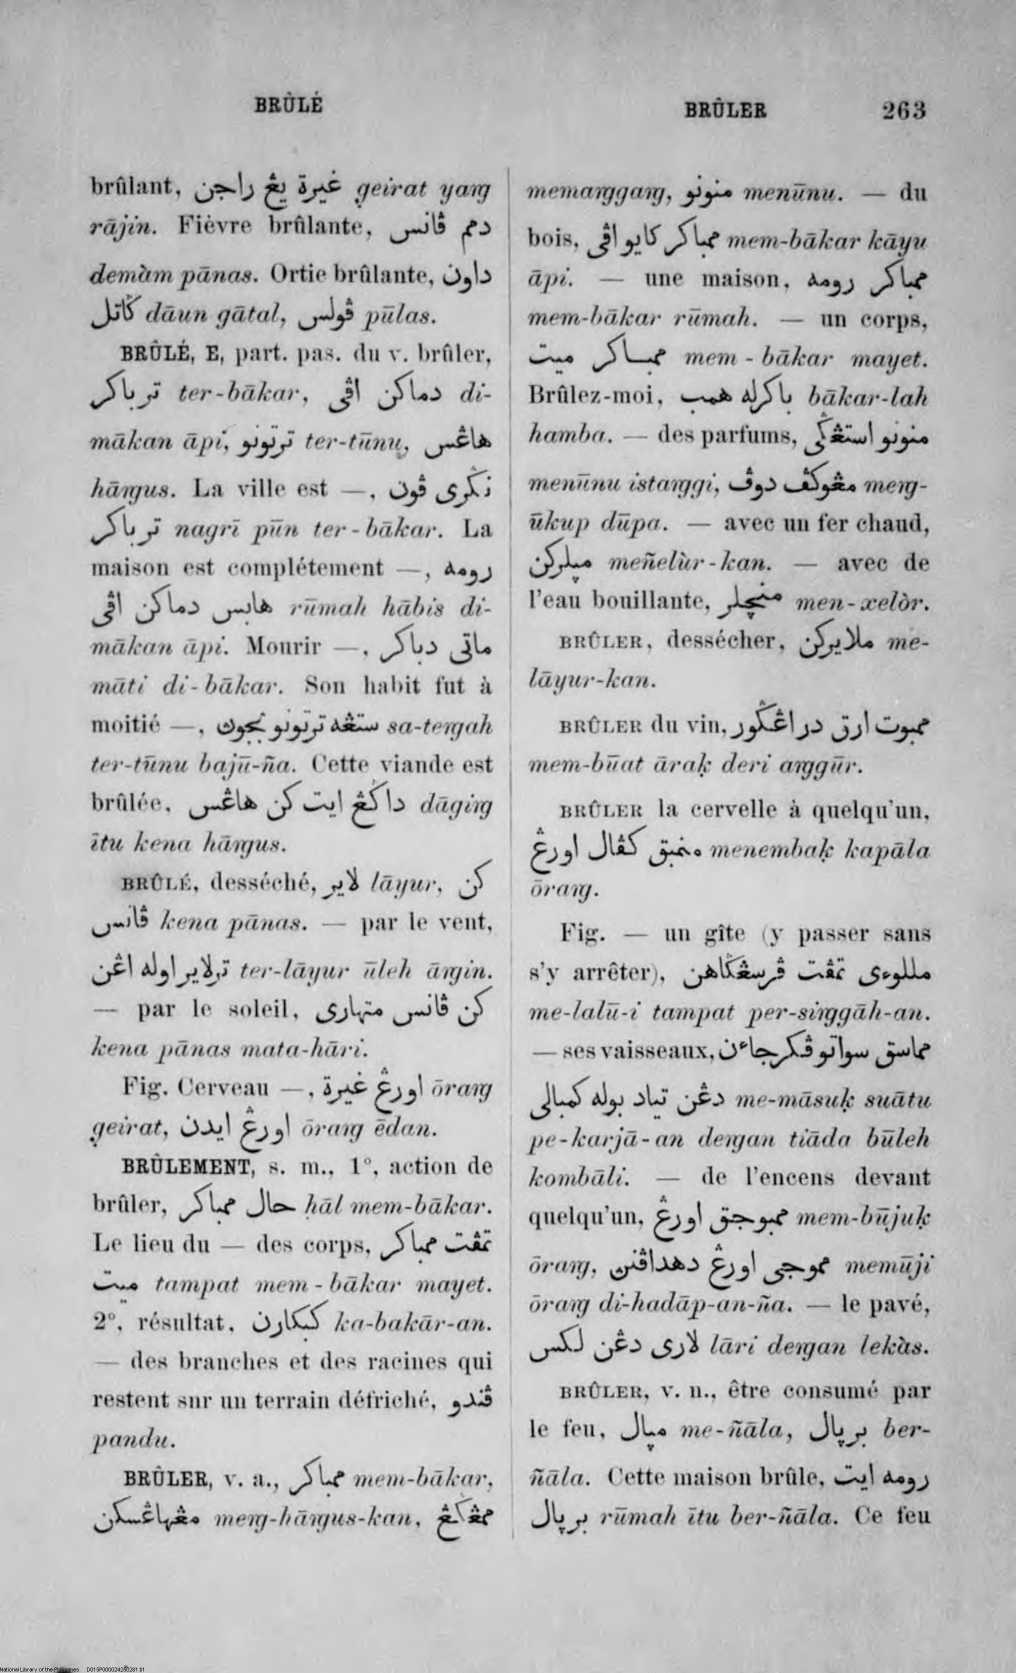 BRÛLÉ
BRÛLER 263
brûlant, غيرة يڠ راجن geirat yaṅg
rājin. Fièvre brûlante, دمم ڤانس
demàm pānas. Ortie brûlante, داون
ݢاتل dāun gātal, ڤولس pūlas.
BRÛLÉ, E, part. pas. du v. brûler,
ترباكر ter-bākar, دماكن اڤي di-
mākan āpi, ترتونو ter-tūnu, هاڠس
hāṅgus. La ville est —, نݢري ڤون
ترباكر nagrī pūn ter-bākar. La
maison est complétement —, رومه
هابس دماكن اڤي rūmah hābis di-
mākan āpi. Mourir —, ماتي دباكر
māti di-bākar. Son habit fut à
moitié —, ستڠه ترتونو بجوڽ sa-teṅgah
ter-tūnu bajū-ña. Cette viande est
brûlée, داݢڠ ايت كن هاڠس dāgiṅg
ītu kena hāṅgus.
BRÛLÉ, desséché, لاير lāyur, كن
ڤانس kena pānas. — par le vent,
ترلاير اوله اڠن ter-lāyur ūleh āṅgin.
— par le soleil, كن ڤانس متهاري
kena pānas mata-hāri.
Fig. Cerveau —, اورڠ غيرة ōraṅg
geirat, اورڠ ايدن ōraṅg ēdan.
BRÛLEMENT, s. m., 1°, action de
brûler, حال ممباكر ḥāl mem-bākar.
Le lieu du — des corps, تمڤت ممباكر
ميت tampat mem-bākar mayet.
2°, résultat, كبكارن ka-bakār-an.
— des branches et des racines qui
restent sur un terrain défriché, ڤندو
pandu.
BRÛLER, v. a., ممباكر mem-bākar,
مڠهاڠسكن meṅg-hāṅgus-kan, ممڠݢڠ
memaṅggaṅg, منونو menūnu. — du
bois, ممباكر كايو اڤي mem-bākar kāyu
āpi. — une maison, ممباكر رومه
mem-bākar rūmah. — un corps,
ممباكر ميت mem-bākar mayet.
Brûlez-moi, باكرله همب bākar-lah
hamba. — des parfums, منونو استڠݢي
menūnu istaṅggi, مڠوكڤ دوڤ meṅg-
ūkup dūpa. — avec un fer chaud,
مڽلركن meñelùr-kan. — avec de
l'eau bouillante, منچلر men-xelòr.
BRÛLER, dessécher, ملايركن me-
lāyur-kan.
BRÛLER du vin, ممبوت ارق در اڠݢور
mem-būat āraḳ deri aṅggūr.
BRÛLER la cervelle à quelqu'un,
منمبق كڤال اورڠ menembaḳ kapāla
ōraṅg.
Fig. — un gîte (y passer sans
s'y arrêter), مللوءي تمڤت ڤرسڠݢاهن
me-lalū-i tampat per-siṅggāh-an.
— ses vaisseaux, مماسق سواتو ڤكرجاءن
دڠن تياد بوله كمبالي me-māsuḳ suātu
pe-karjā-an deṅgan tiāda būleh
kombāli. — de l'encens devant
quelqu'un, ممبوجق اورڠ mem-būjuḳ
ōraṅg, مموجي اورڠ دهداڤنڽ memūji
ōraṅg di-hadāp-an-ña. — le pavé,
لاري دڠن لكس lāri deṅgan lekàs.
BRÛLER, v. n., être consumé par
le feu, مڽال me-ñāla, برڽال ber-
ñāla. Cette maison brûle, رومه ايت
برڽال rūmah ītu ber-ñāla. Ce feu
National Library of the Philippines